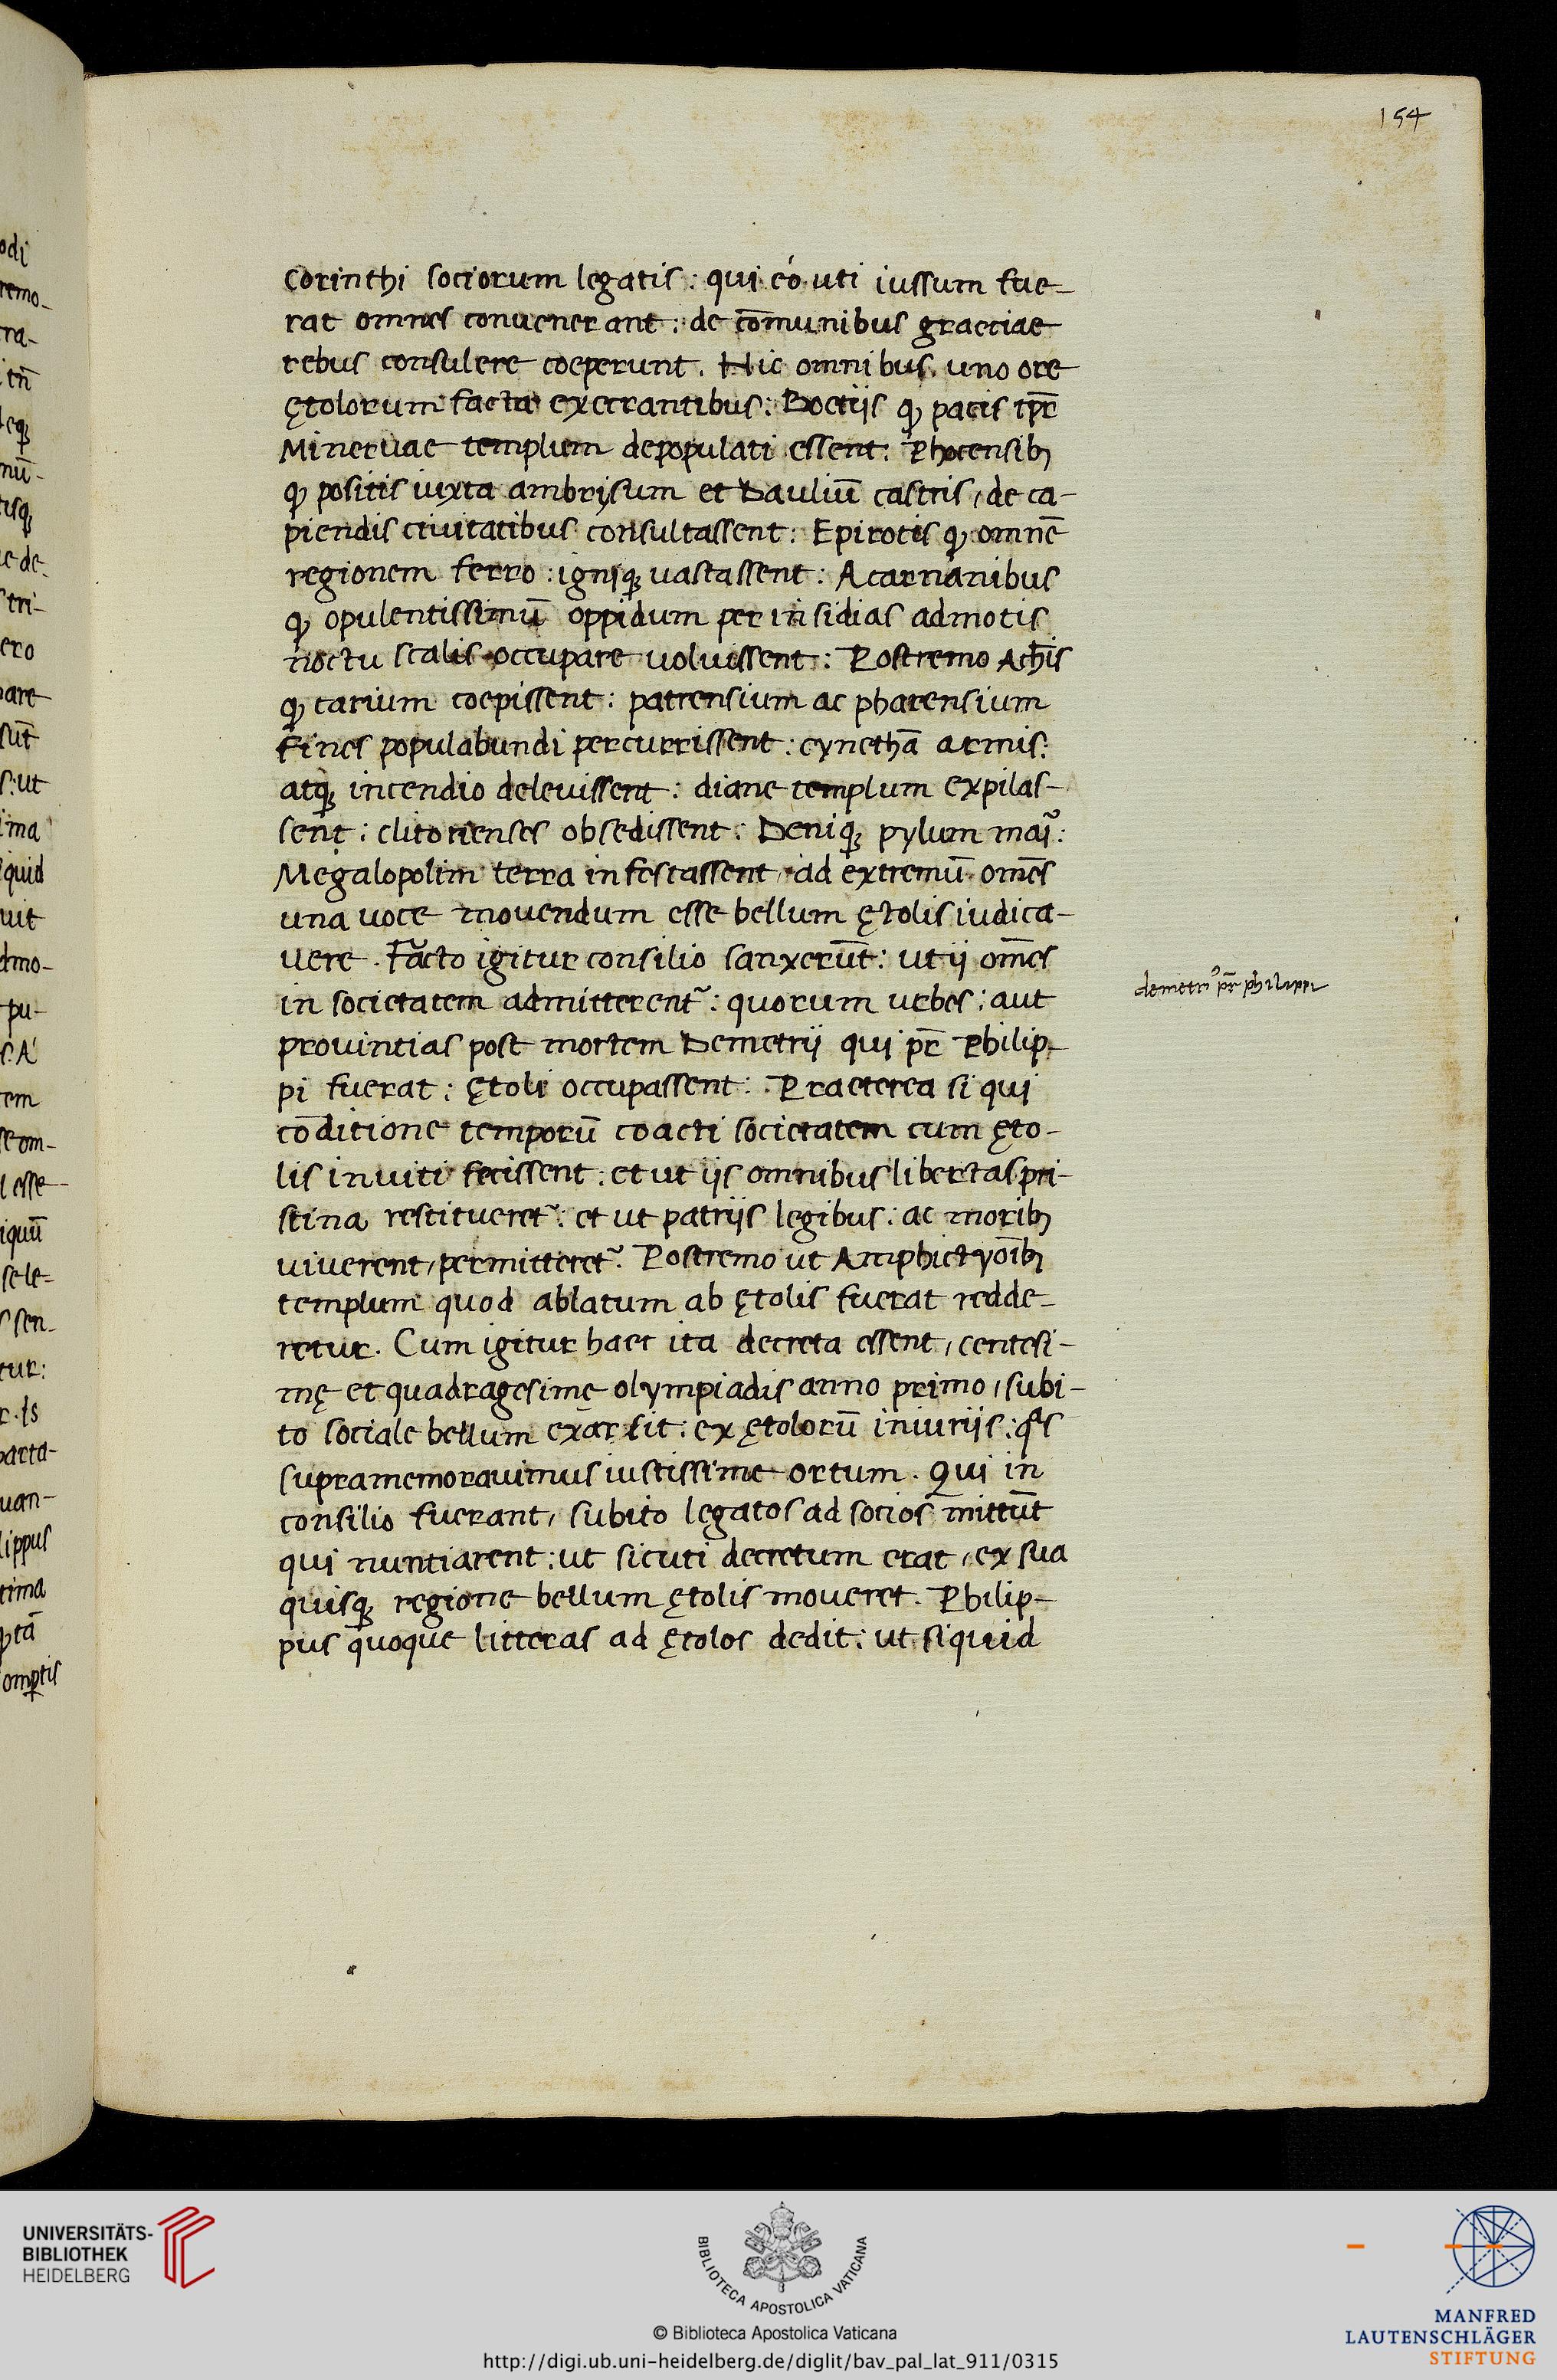 154
Corinthi sociorum legatis: qui eó uti iussum fue-
rat omnes conuenerant: de cōmunibus graeciae
rebus consulere coeperunt. Hic omnibus uno ore
ętolorum facta execrantibus: Boetiis ꝙ pacis tp̄r
Mineruae templum depopulati essent: Phocensibꝫ
ꝙ positis iuxta ambrysum et Dauliū castris, de ca-
piendis ciuitatibus consultassent: Epirotis ꝙ omnē
regionem ferro: igniqꝫ uastassent: Acarnanibus
ꝙ opulentissimū oppidum per insidias admotis
noctu scalis occupare uoluissent: Postremo Ach̄is
ꝙ carium coepissent: patrensium ac pharensium
fines populabundi percurrissent: cynethā armis:
atqꝫ incendio deleuissent: diane templum expilas-
sent: clitorienses obsedissent: Deniqꝫ pylum mari:
Megalopolim terra infestassent, ad extremū om̄es
una uoce mouendum esse bellum ętolis iudica-
uere. Facto igitur consilio sanxerūt: ut ii om̄es
in societatem admitterent᷑: quorum urbes: aut
prouintias post mortem Demetrii qui pr̄ Philip-
pi fuerat: ętoli occupassent: Praeterea si qui
cōditione temporū coacti societatem cum ęto-
lis inuiti fecissent: et ut iis omnibus libertas pri-
stina restitueret᷑: et ut patriis legibus: ac moribꝫ
uiuerent, permitteret᷑. Postremo ut Amphictyoībꝫ
templum quod ablatum ab ętolis fuerat redde-
retur. Cum igitur haec ita decreta essent, centesi-
mę et quadragesimę olympiadis anno primo, subi-
to sociale bellum exarsit: ex ętolorū iniuriis: qͣs
supra memorauimus iustissime ortum. Qui in
consilio fuerant, subito legatos ad socios mittūt
qui nuntiarent: ut sicuti decretum erat, ex sua
quisqꝫ regione bellum ętolis moueret. Philip-
pus quoque litteras ad ętolos dedit: ut siquid
demetriꝰ pr̄ philippi
UNIVERSITÄTS-
BIBLIOTHEK
HEIDELBERG
BIBLIOTECA APOSTOLICA VATICANA
© Biblioteca Apostolica Vaticana
http://digi.ub.uni-heidelberg.de/diglit/bav_pal_lat_911/0315
MANFRED
LAUTENSCHLÄGER
STIFTUNG